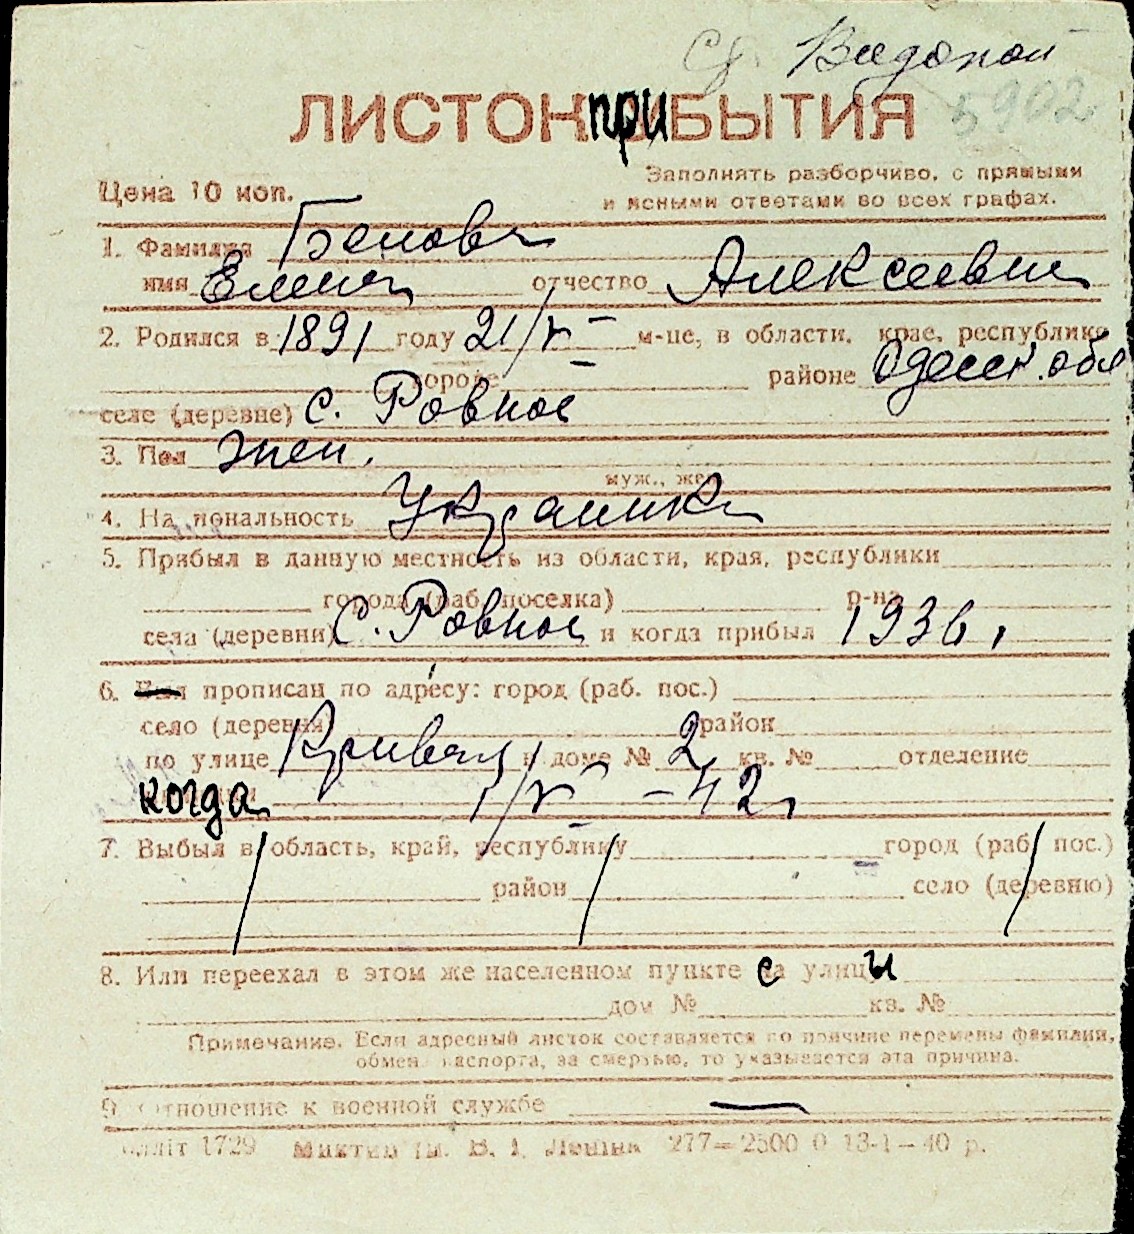 Ст. Водопой
5902
ЛИСТОК ПРИБЫТИЯ
Цена 10 коп.
Заполнять разборчиво, с прямыми
и ясными ответами во всех графах.
1. Фамилия Белова
имя Елена отчество Алексеевна
2. Родился в 1891 году 21/V м-це, в области, крае, республике
городе районе Одесск. обл
селе (деревне) с. Ровное
3. Пол жен.
муж., жен
4. Национальность Украинка
5. Прибыл в данную местность из области, края, республики
города (раб. поселка) р-на
села (деревни) С. Ровное и когда прибыл 1936 г
6. прописан по адресу: город (раб. пос.)
село (деревня) район
по улице Кривая в доме № 2 кв. № отделение
когда 1/V - 42 г
7. Выбыл в область, край, республику город (раб. пос.)
район село (деревню)
8. Или переехал в этом же населенном пункте с улицы
дом № кв. №
Примечание. Если адресный листок составляется по причине перемены фамилии,
обмен паспорта, за смертью, то указывается эта причина.
9. Отношение к военной службе —
1729 им. В. І. Леніна 277—2500 0 13-1—40 р.